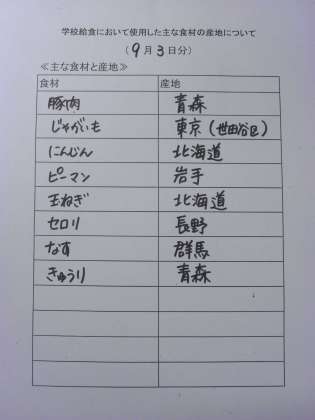 学校給食において使用した主な食材の産地について
(9月3日分)
≪主な食材と産地≫
食材 産地
豚肉 青森
じゃがいも 東京(世田谷区)
にんじん 北海道
ピーマン 岩手
玉ねぎ 北海道
セロリ 長野
なす 群馬
きゅうり 青森